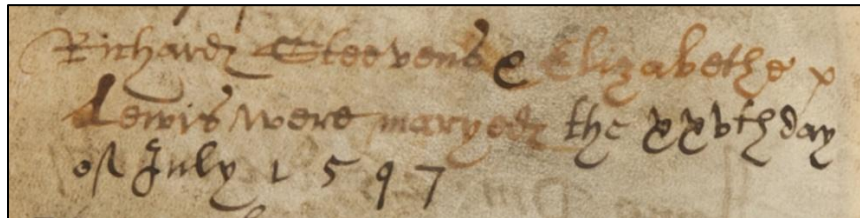 Richard Steevens & Elizabethe
Lewis were maryed the xxvth day
of July 1597